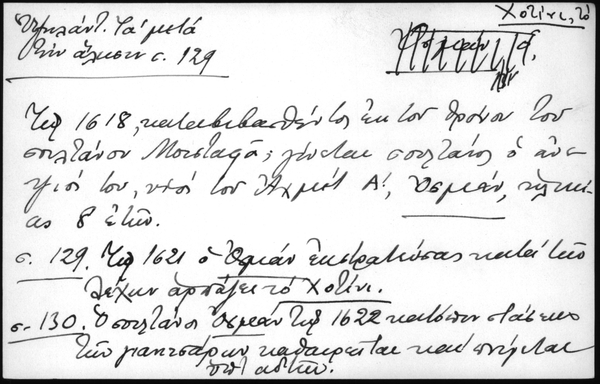 Ὑψηλάντ. Τὰ μετὰ
τὴν ἅλωσιν σ. 129
Χοτίνι, τὸ
Ὀσμάν
Τῷ 1618, καταβιβασθέντος ἐκ τοῦ θρόνου τοῦ
σουλτάνου Μουσταφᾶ, γίνεται σουλτάνος ὁ ἀνε-
ψιός του, υἱὸς τοῦ Ἀχμὲτ Α!, Ὀσμάν, ἡλικί-
ας 8 ἐτῶν.
σ. 129. Τῷ 1621 ὁ Ὀσμάν ἐκστρατεύσας κατὰ τῶν
Λέχων ἁρπάζει τὸ Χοτίνι.
σ. 130. Ὁ σουλτάνος Ὀσμάν τῷ 1622 κατόπιν στάσεως
τῶν γιανιτσάρων καθαιρεῖται καὶ πνίγεται
ὑπ' αὐτῶν.